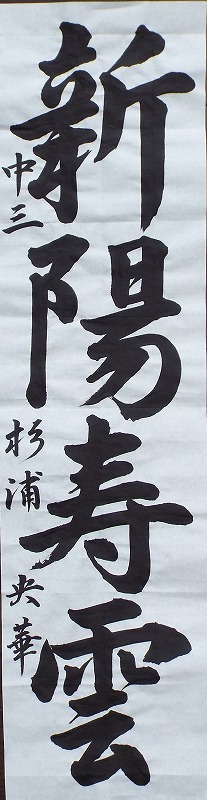 新陽寿雲
中三 杉浦 央華